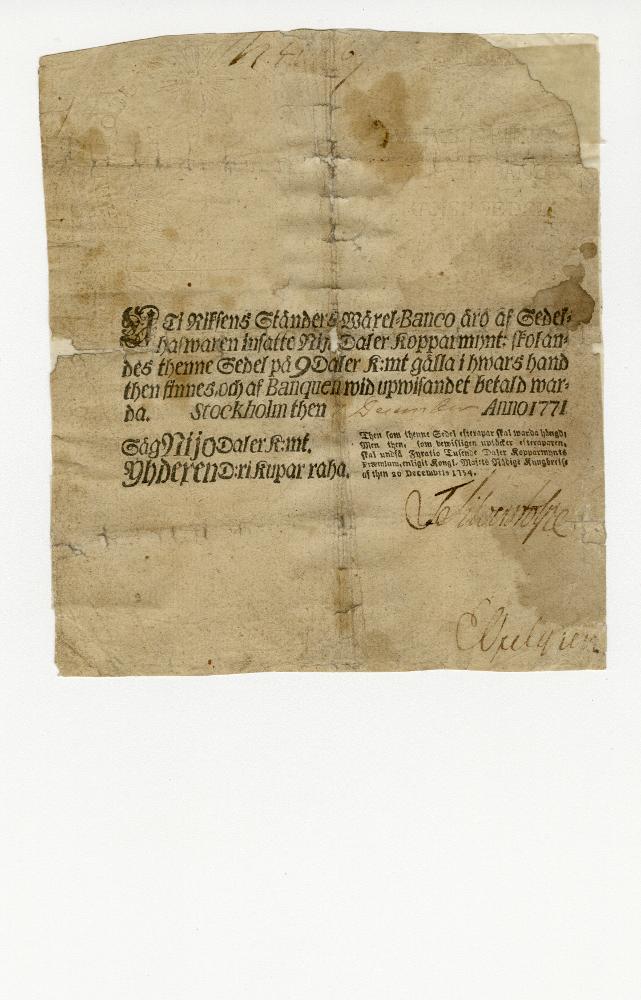 Uti Riksens Ständers Wäxel-Banco äro af Sedel-
hafwaren insatte Nijo Daler Kopparmynt: skolan-
des thenne Sedel på 9 Daler K:mt gälla i hwars hand
then finnes, och af Banquen wid upwisandet betald war-
da. Stockholm then December Anno 1771
Säg Nijo Daler K:mt.
Yhdexen D:ri Kupar raha.
Then som thenne Sedel efterapar skal warda hängd;
Men then, som bewisligen uptäcker efteraparen,
skal undfå Fyratio Tusende Daler Kopparmynts
Præmium, enligit Kongl. Maj:ts Nådige Kungörelse
af then 20 Decembris 1754.